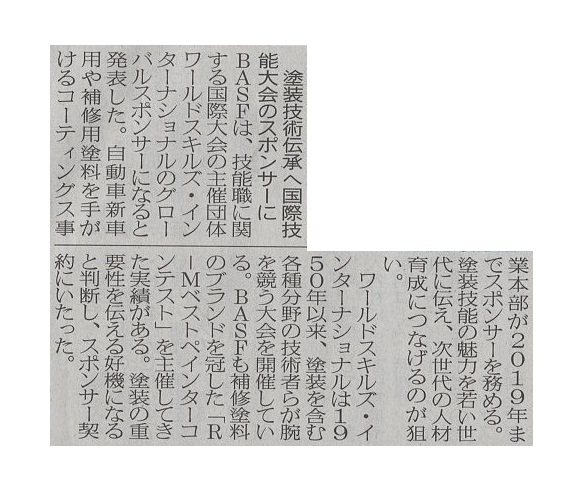 塗装技術伝承へ国際技
能大会のスポンサーに
BASFは、技能職に関
する国際大会の主催団体
ワールドスキルズ・イン
ターナショナルのグロー
バルスポンサーになると
発表した。自動車新車
用や補修用塗料を手が
けるコーティングス事
業本部が2019年ま
でスポンサーを務める。
塗装技能の魅力を若い世
代に伝え、次世代の人材
育成につなげるのが狙
い。
ワールドスキルズ・イ
ンターナショナルは19
50年以来、塗装を含む
各種分野の技術者らが腕
を競う大会を開催してい
る。BASFも補修塗料
のブランドを冠した「R
―Mベストペインターコ
ンテスト」を主催してき
た実績がある。塗装の重
要性を伝える好機になる
と判断し、スポンサー契
約にいたった。